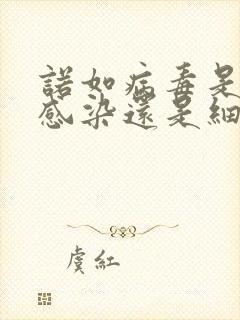 諾如病毒是
感染還是細
虞紅